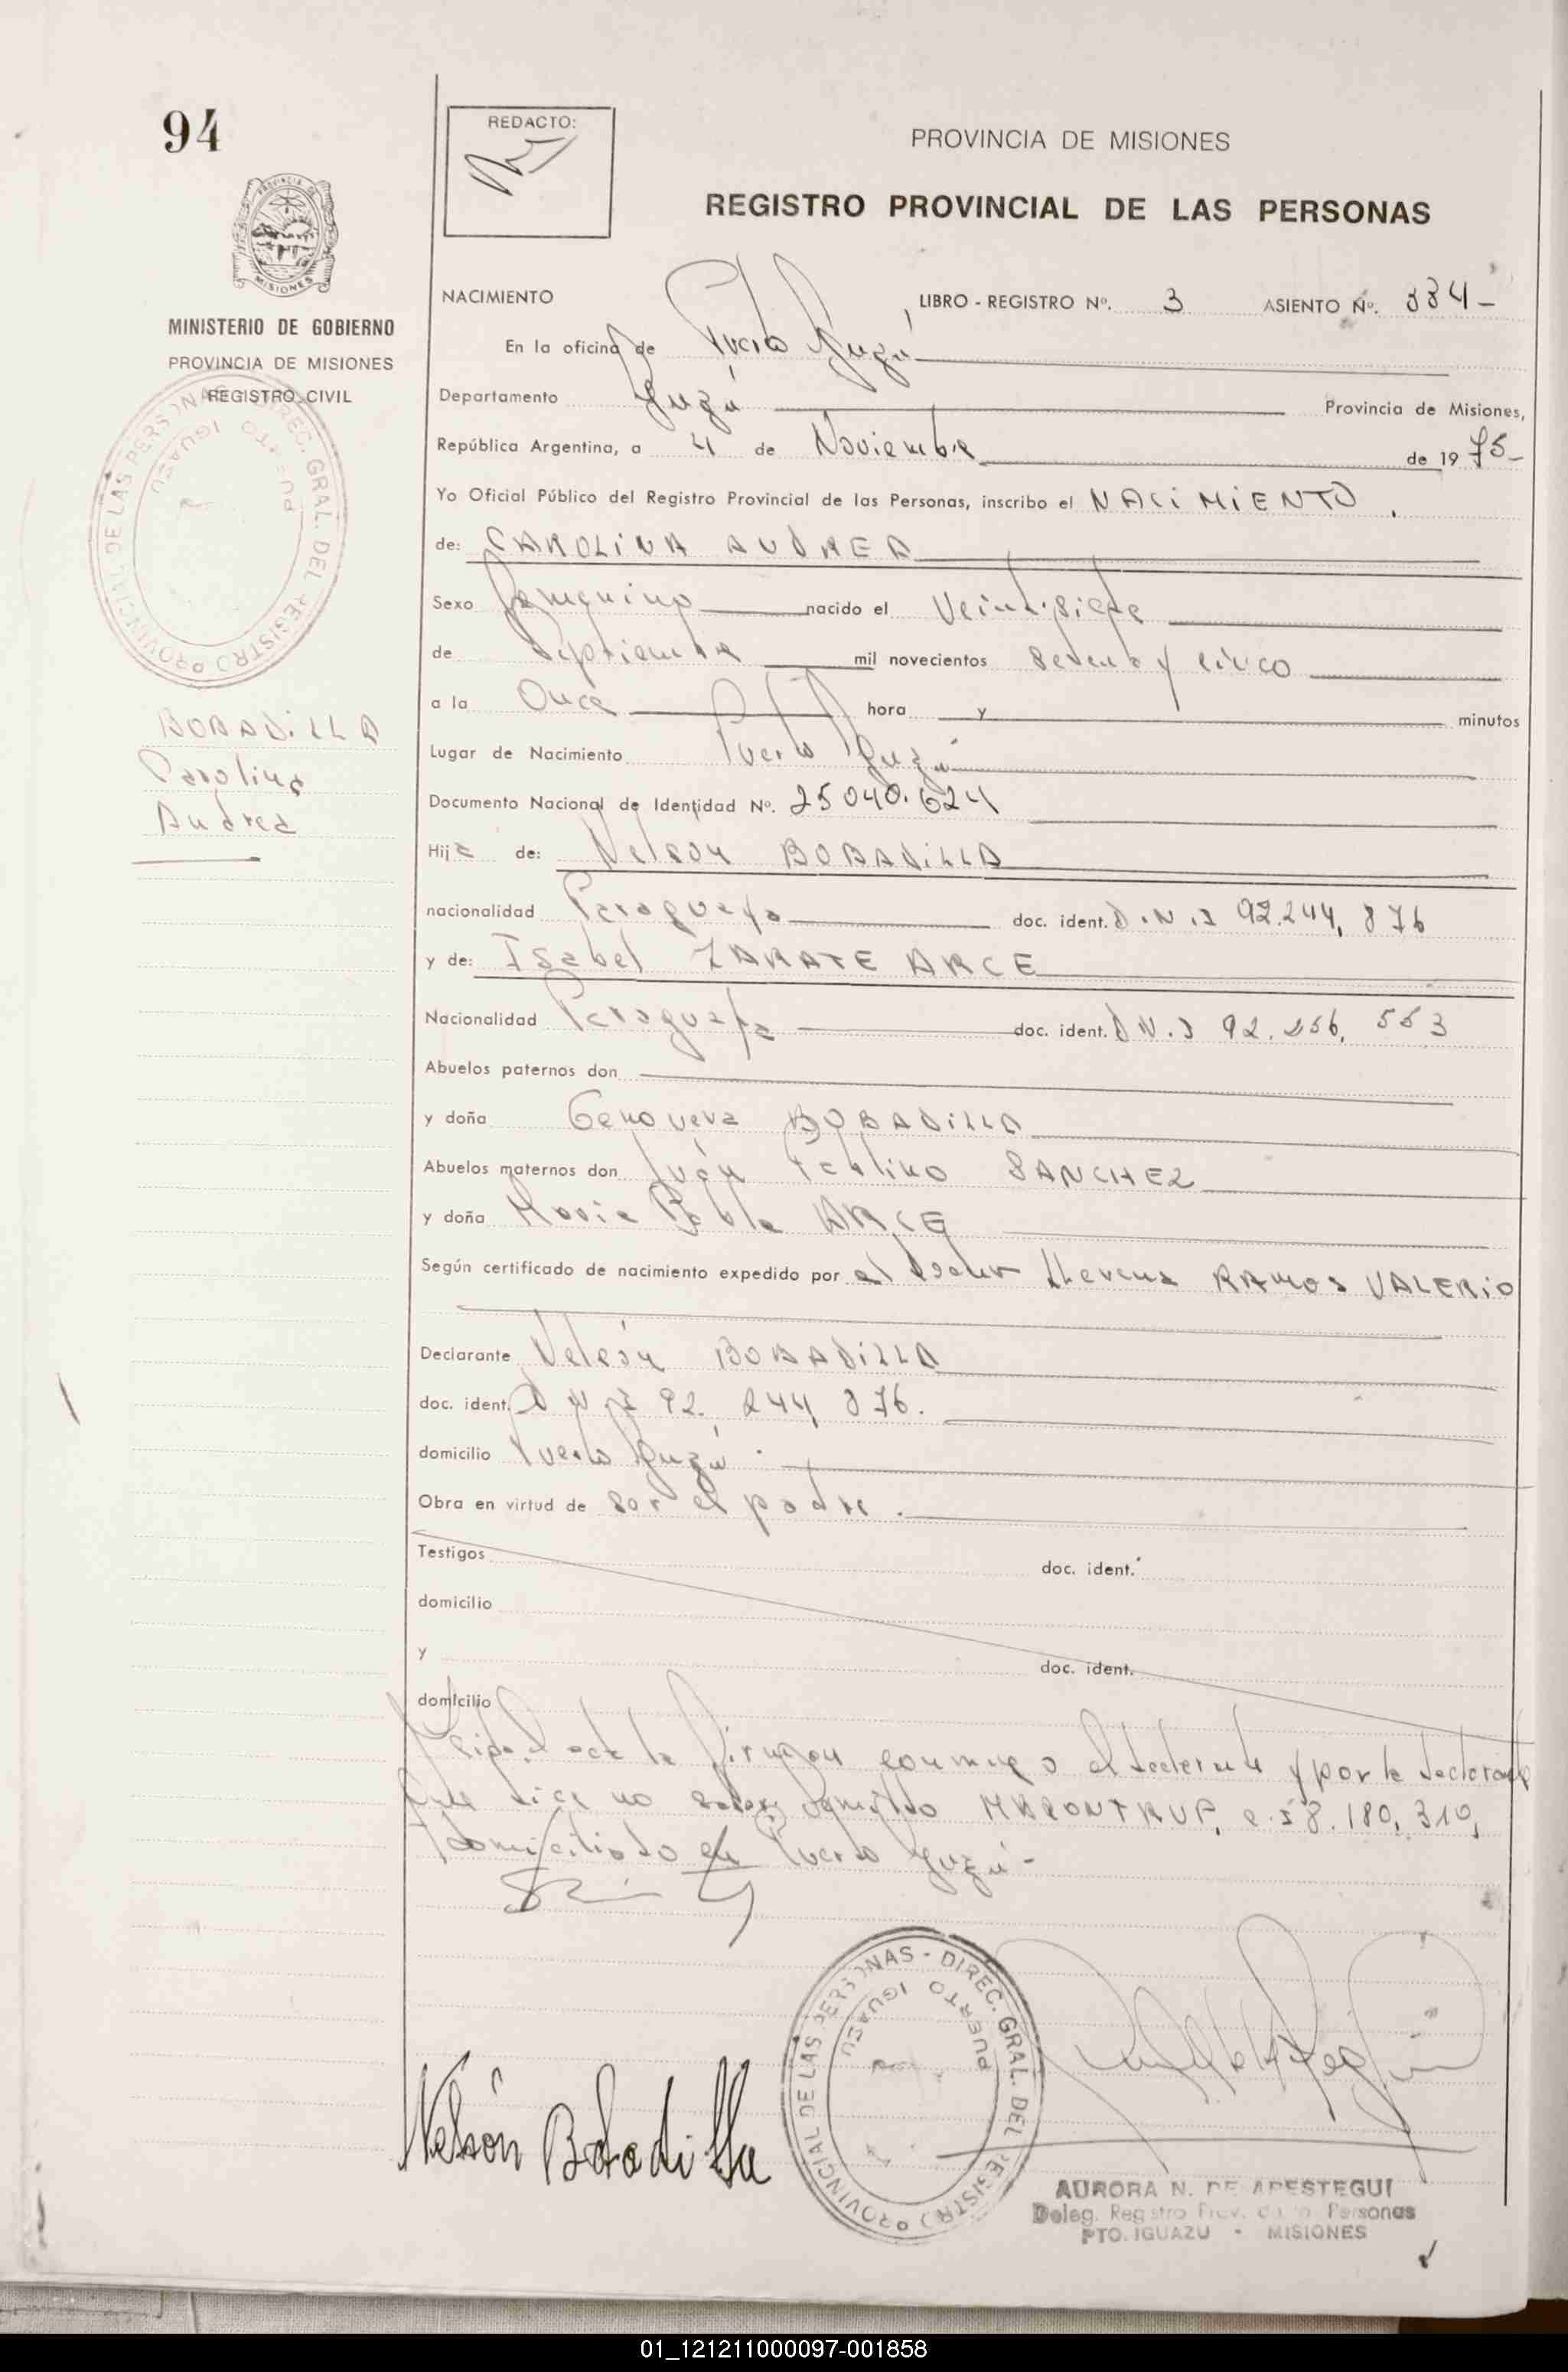 94
REDACTO:
PROVINCIA DE MISIONES
REGISTRO PROVINCIAL DE LAS PERSONAS
PROVINCIA DE
MISIONES
MINISTERIO DE GOBIERNO
PROVINCIA DE MISIONES
REGISTRO CIVIL
NACIMIENTO LIBRO - REGISTRO Nº. 3 ASIENTO Nº. 334-
En la oficina de Puerto Iguazú
Departamento Iguazú Provincia de Misiones,
República Argentina, a 4 de Noviembre de 1975-
Yo Oficial Público del Registro Provincial de las Personas, inscribo el NACIMIENTO.
de: CAROLINA ANDREA
Sexo Femenino nacido el Veintisiete
de Septiembre mil novecientos setenta y cinco
a la Once hora y minutos
Lugar de Nacimiento Puerto Iguazú
Documento Nacional de Identidad Nº. 25 040.624
Hija de: Nelson BOBADILLA
nacionalidad Paraguaya doc. ident. D.N.I 92.244.876
y de: Isabel ZARATE ARCE
Nacionalidad Paraguaya doc. ident. D N.I 92.256.553
Abuelos paternos don
y doña Genoveva BOBADILLA
Abuelos maternos don Juán SANCHEZ
y doña María ARCE
Según certificado de nacimiento expedido por el Doctor RAMOS VALERIO
Declarante Nelsón BOBADILLA
doc. ident. D N I 92.244,876.
domicilio Puerto Iguazú.
Obra en virtud de ser el padre.
Testigos doc. ident.
domicilio
y doc. ident.
domicilio
acta la firman conmigo el declarante y por la declarante
que dice no 8.180,310,
domiciliado en Puerto Iguazú-
BOBADILLA
Carolina
Andrea
DIREC. GRAL. DEL REGISTRO PROVINCIAL DE LAS PERSONAS
PUERTO IGUAZU
Nelsón Bobadilla
DIREC. GRAL. DEL REGISTRO PROVINCIAL DE LAS PERSONAS -
PUERTO IGUAZU
AURORA N. DE APESTEGUI
Deleg. Registro Prov. de las Personas
PTO. IGUAZU - MISIONES
01_121211000097-001858